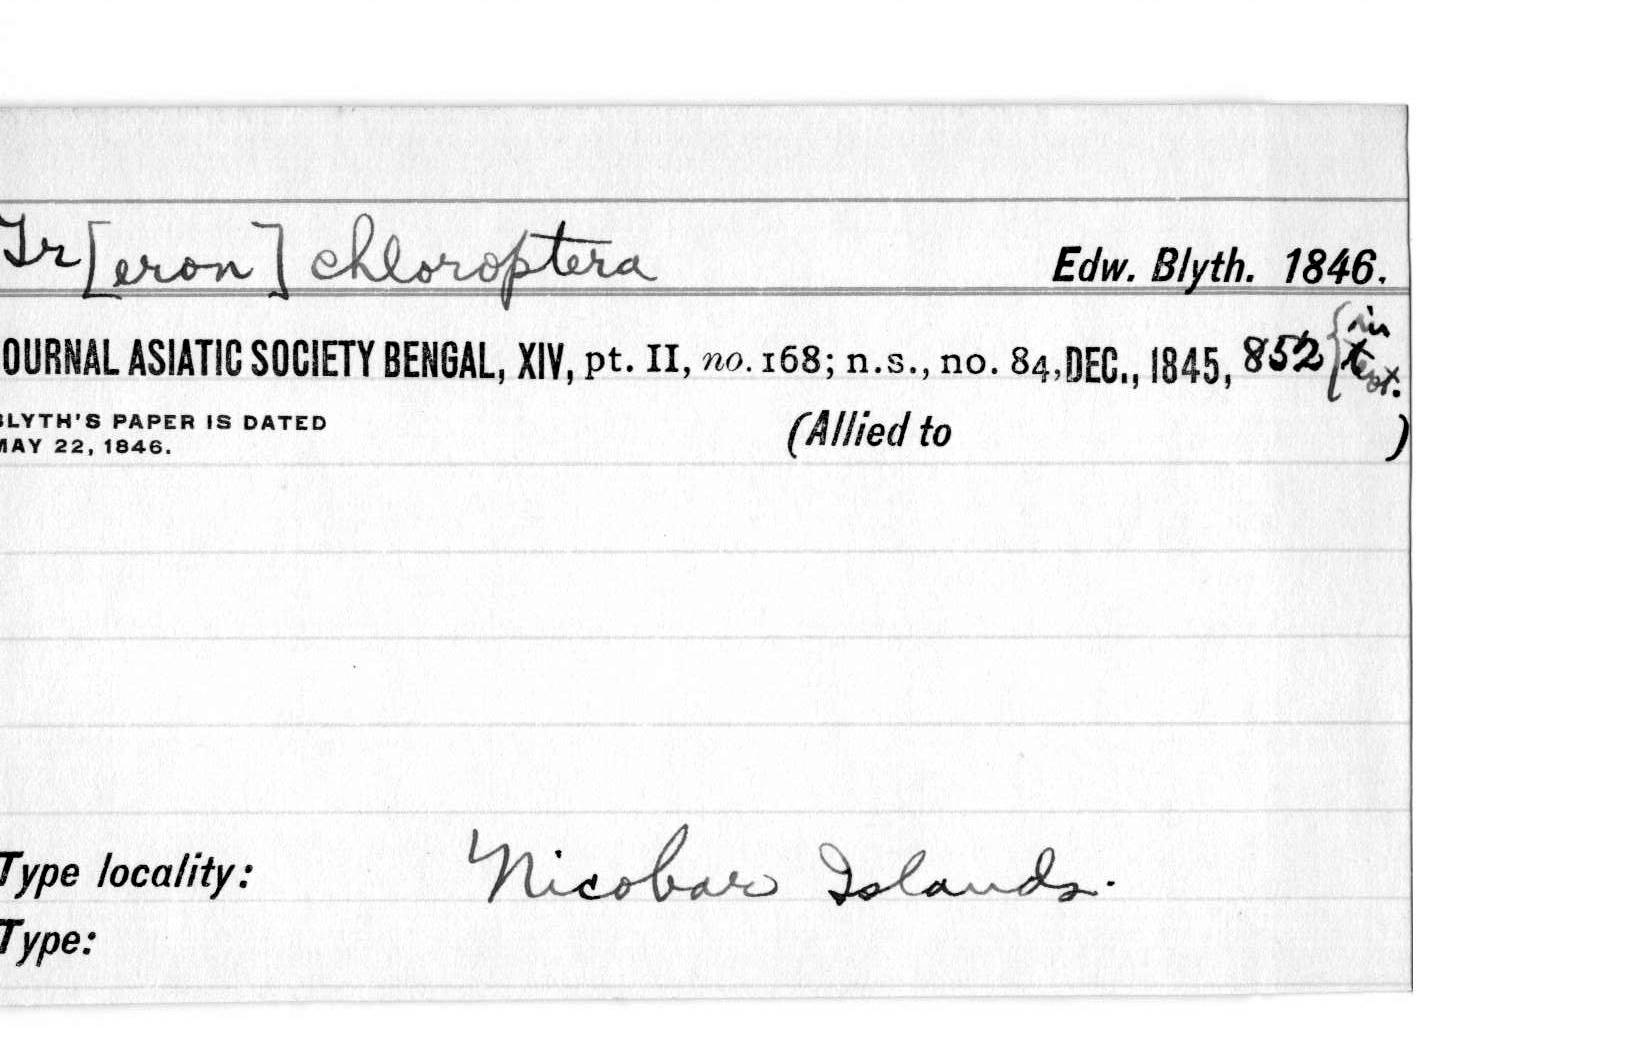 Tr[eron] chloroptera Edw. Blyth. 1846.
OURNAL ASIATIC SOCIETY BENGAL, XIV, pt. II, no. 168; n.s., no. 84, DEC., 1845, 852 {in text.
BLYTH'S PAPER IS DATED
MAY 22, 1846.
(Allied to )
Type locality: Nicobar Islands.
Type: